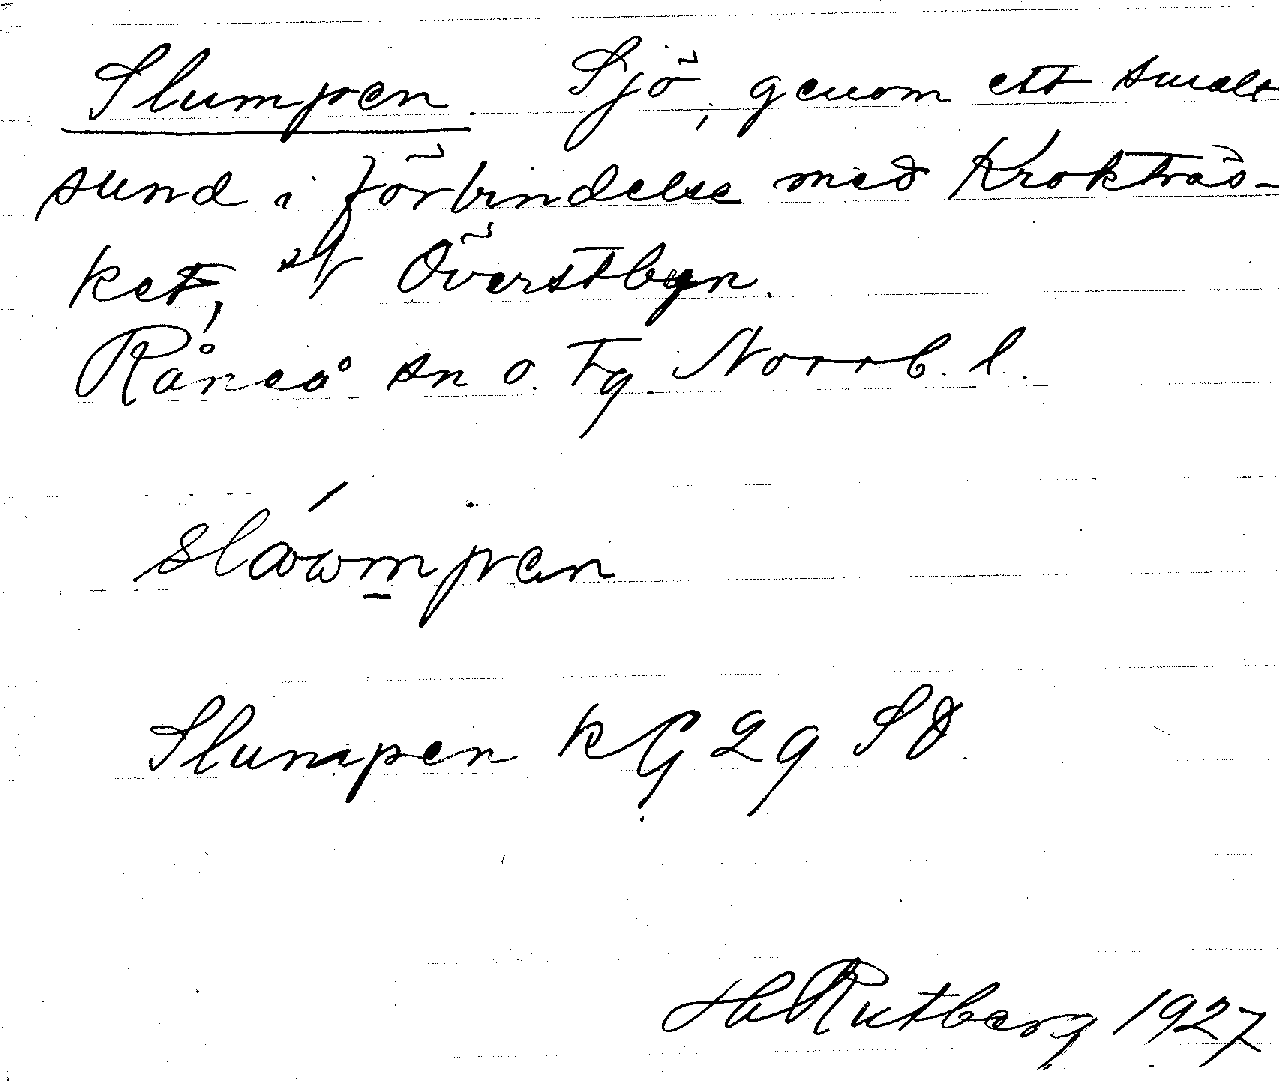 Slumpen Sjö, genom ett smalt
sund i förbindelse med Kroktträs-
ket, Överstbyn.
Råneå sn o. Tg. Norrb. l.
Slumpen KG 29 SD
H Rutberg 1927